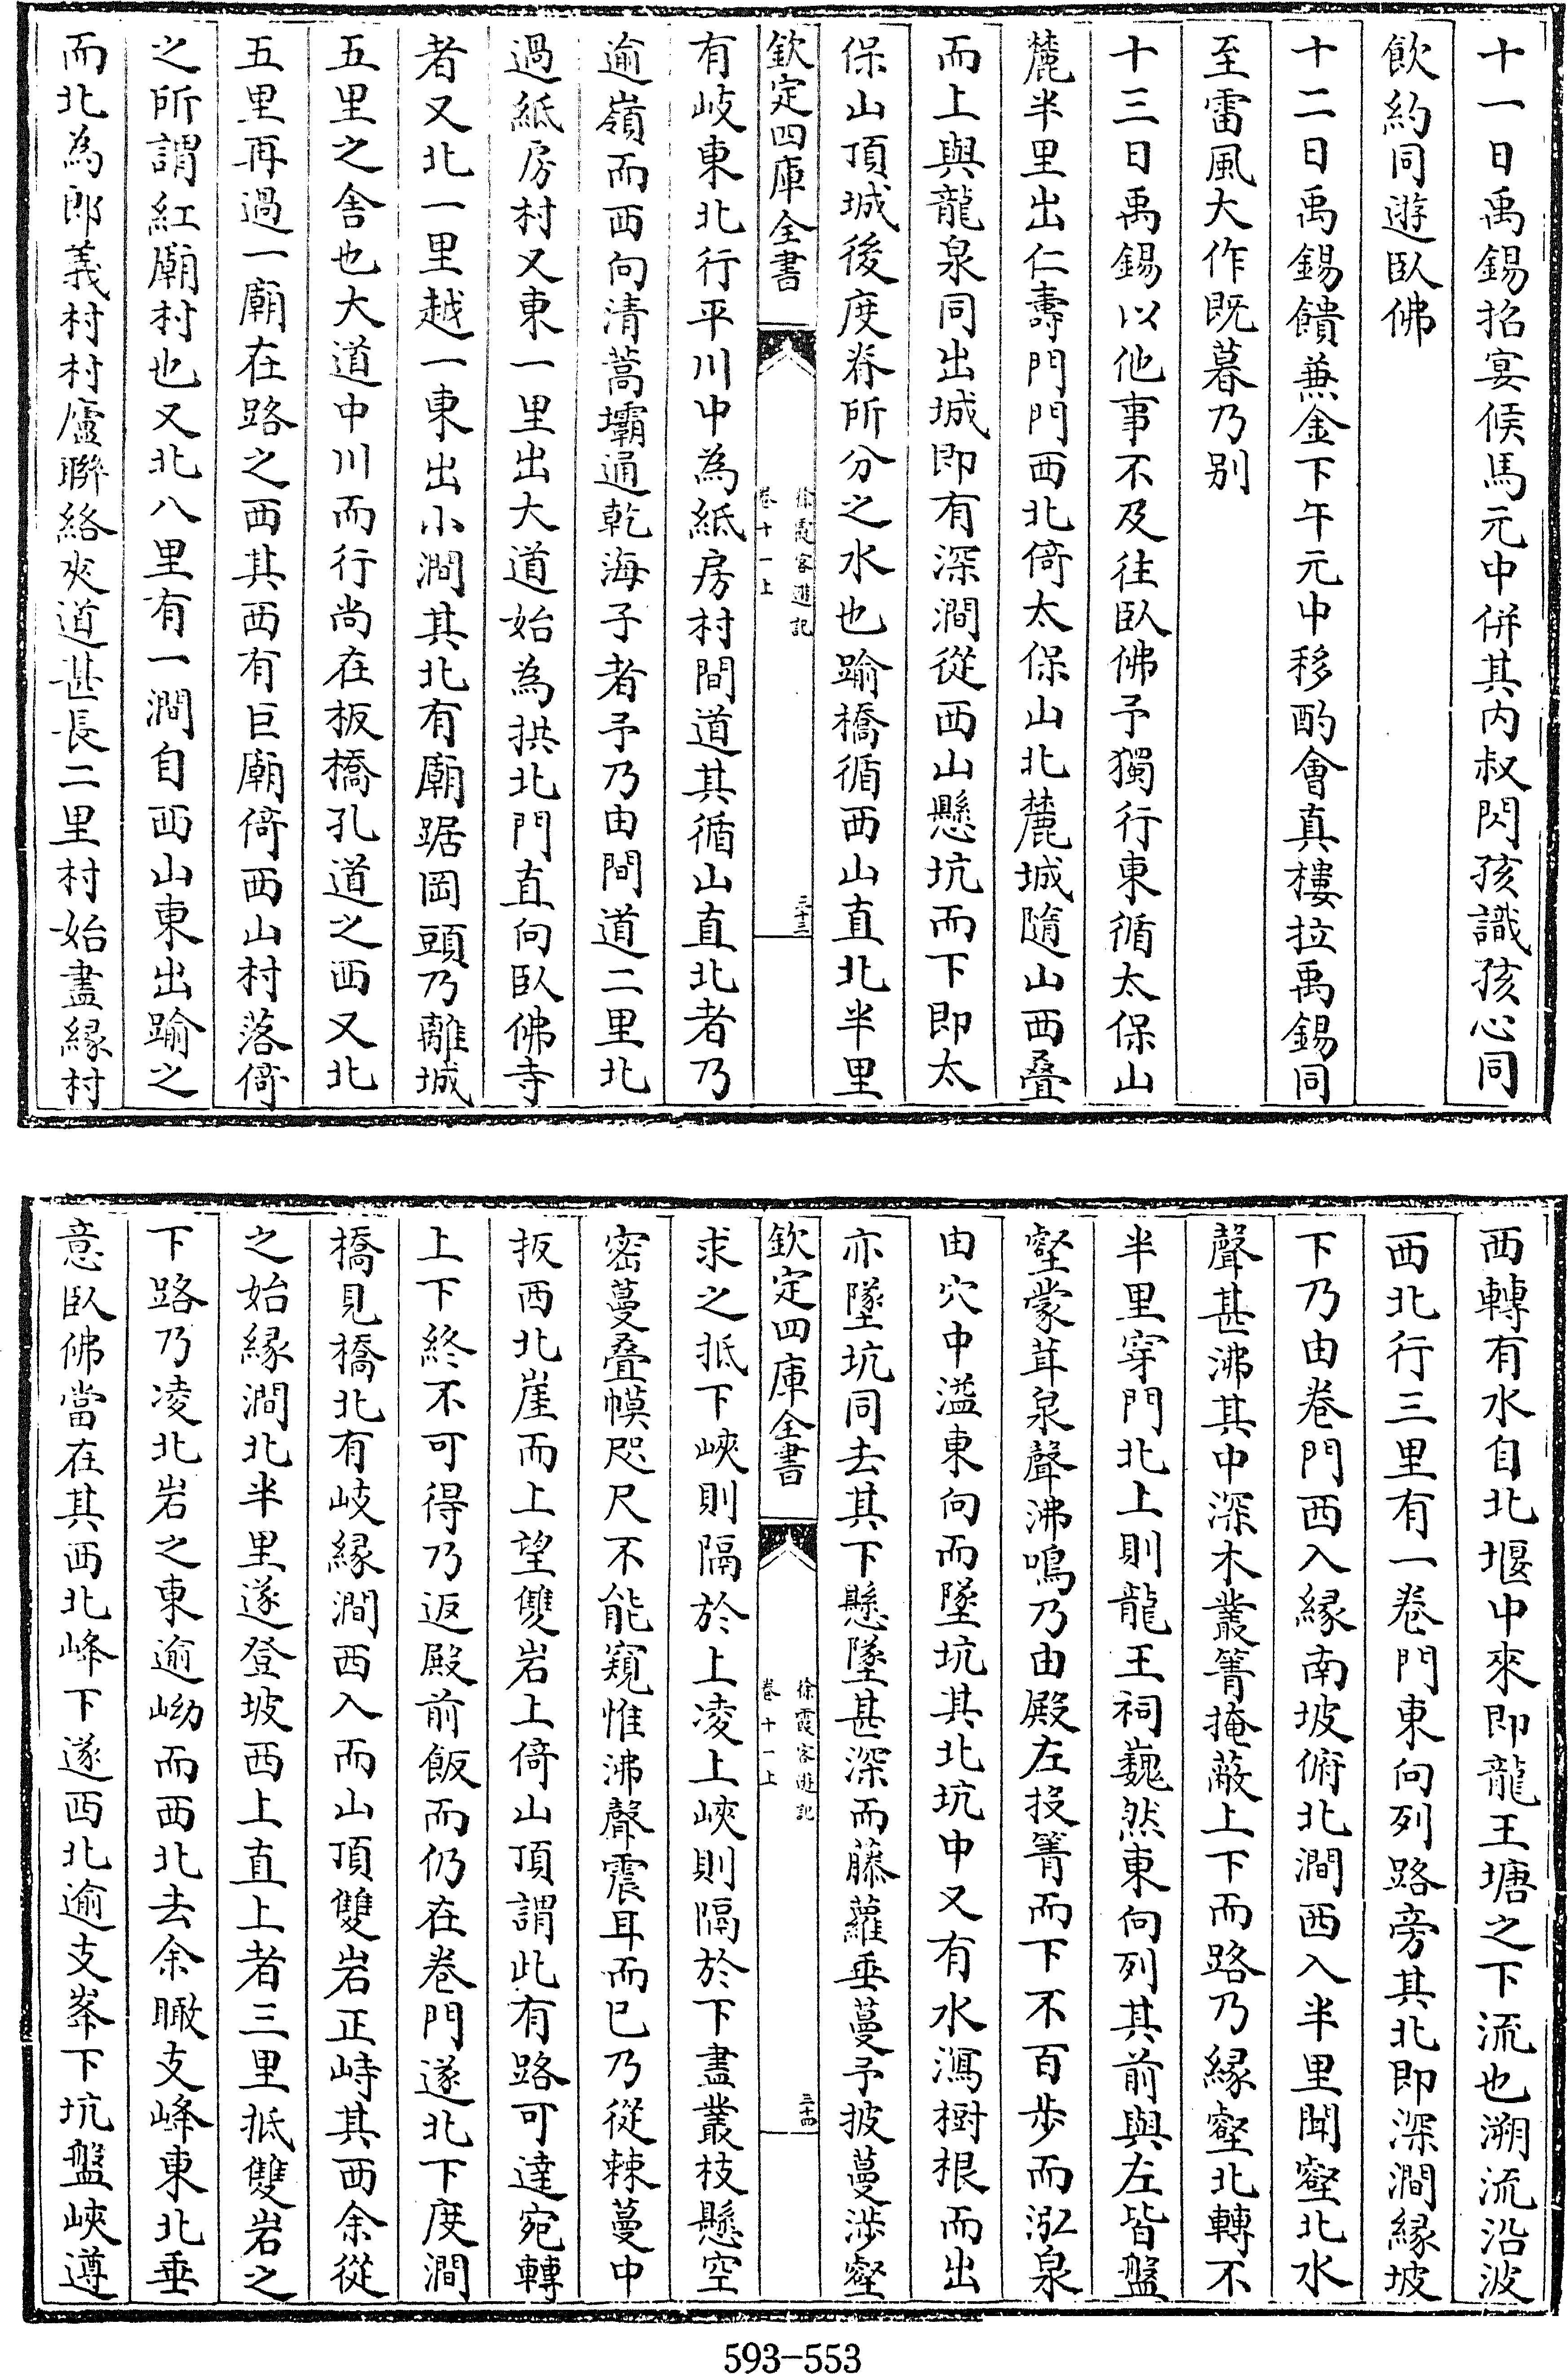 十一日禹錫招宴候馬元中併其内叔閃孩識孩心同
飲約同遊臥佛
十二日禹錫饋兼金下午元中移酌會真樓拉禹錫同
至雷風大作既暮乃别
十三日禹錫以他事不及往臥佛予獨行東循太保山
麓半里出仁壽門門西北倚太保山北麓城隨山西叠
而上與龍泉同出城即有深澗從西山懸坑而下即太
保山頂城後度脊所分之水也踰橋循西山直北半里
欽定四庫全書
徐霞客遊記
卷十一上
三十三
有岐東北行平川中為紙房村間道其循山直北者乃
逾嶺而西向清蒿壩通乾海子者予乃由間道二里北
過紙房村又東一里出大道始為拱北門直向臥佛寺
者又北一里越一東出小澗其北有廟踞岡頭乃離城
五里之舍也大道中川而行尚在板橋孔道之西又北
五里再過一廟在路之西其西有巨廟倚西山村落倚
之所謂紅廟村也又北八里有一澗自西山東出踰之
而北為郎義村村廬聯絡夾道甚長二里村始盡縁村
西轉有水自北堰中來即龍王塘之下流也溯流沿波
西北行三里有一卷門東向列路旁其北即深澗縁坡
下乃由卷門西入縁南坡俯北澗西入半里聞壑北水
聲甚沸其中深木叢箐掩蔽上下而路乃縁壑北轉不
半里穿門北上則龍王祠巍然東向列其前與左皆盤
壑蒙茸泉聲沸鳴乃由殿左投箐而下不百步而泓泉
由穴中溢東向而墜坑其北坑中又有水瀉樹根而出
亦墜坑同去其下懸墜甚深而藤蘿垂蔓予披蔓涉壑
欽定四庫全書
徐霞客遊記
卷十一上
三十四
求之抵下峽則隔於上凌上峽則隔於下盡叢枝懸空
密蔓叠幙咫尺不能窺惟沸聲震耳而已乃從棘蔓中
扳西北崖而上望雙岩上倚山頂謂此有路可達宛轉
上下終不可得乃返殿前飯而仍在卷門遂北下度澗
橋見橋北有岐縁澗西入而山頂雙岩正峙其西余從
之始縁澗北半里遂登坡西上直上者三里抵雙岩之
下路乃凌北岩之東逾坳而西北去余瞰支峰東北垂
意臥佛當在其西北峰下遂西北逾支峯下坑盤峽遵
593-553